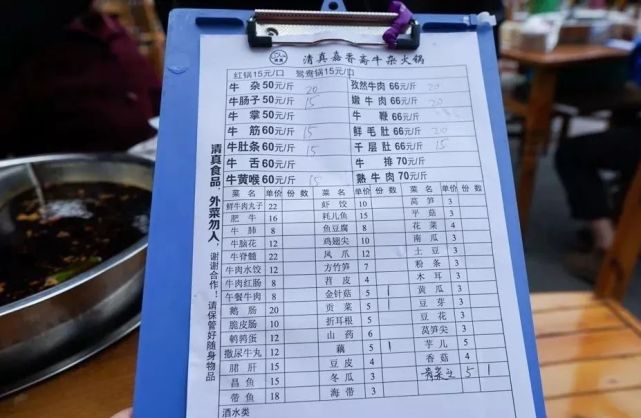 清真嘉香斋牛杂火锅
红锅15元/口 鸳鸯锅15元/口
牛 杂 50元/斤 20 孜然牛肉 66元/斤 20
牛肠子 50元/斤 15 嫩牛肉 66元/斤 20
牛 掌 50元/斤 牛 鞭 66元/斤
牛 筋 60元/斤 15 鲜毛肚 66元/斤 20
牛肚条 60元/斤 15 千层肚 66元/斤 15
牛 舌 60元/斤 牛 排 70元/斤
牛黄喉 60元/斤 15 熟牛肉 70元/斤
菜名 单价 份数 菜名 单价 份数 菜名 单价 份数
鲜牛肉丸子 22 虾饺 10 莴笋 3
肥牛 16 耗儿鱼 15 平菇 3
牛肺 8 鱼豆腐 8 花菜 4
牛脑花 12 鸡翅尖 10 南瓜 3
牛脊髓 22 凤爪 12 土豆 3
牛肉水饺 12 方竹笋 7 粉条 3
牛肉红肠 8 苕皮 4 木耳 3
午餐牛肉 8 金针菇 5 1 黄瓜 3
鹅肠 20 贡菜 5 1 豆芽 3
脆皮肠 10 折耳根 5 豆花 3
鹌鹑蛋 12 山药 6 莴笋尖 3
撒尿牛丸 12 藕 5 1 芋儿 5
肝 15 豆皮 4 香菇 4
昌鱼 15 冬瓜 3 青菜 5 1
带鱼 18 海带 3
酒水类
清真食品,外菜勿入,谢谢合作!请保管好随身物品